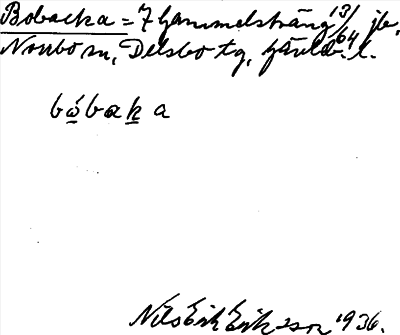 Bobacka = 7 Gammelsträng 13/64 jb,
Norrbo sn, Delsbo tg, Gävleb. l.
bòbak a
Nils Erik Eriksson 1936.